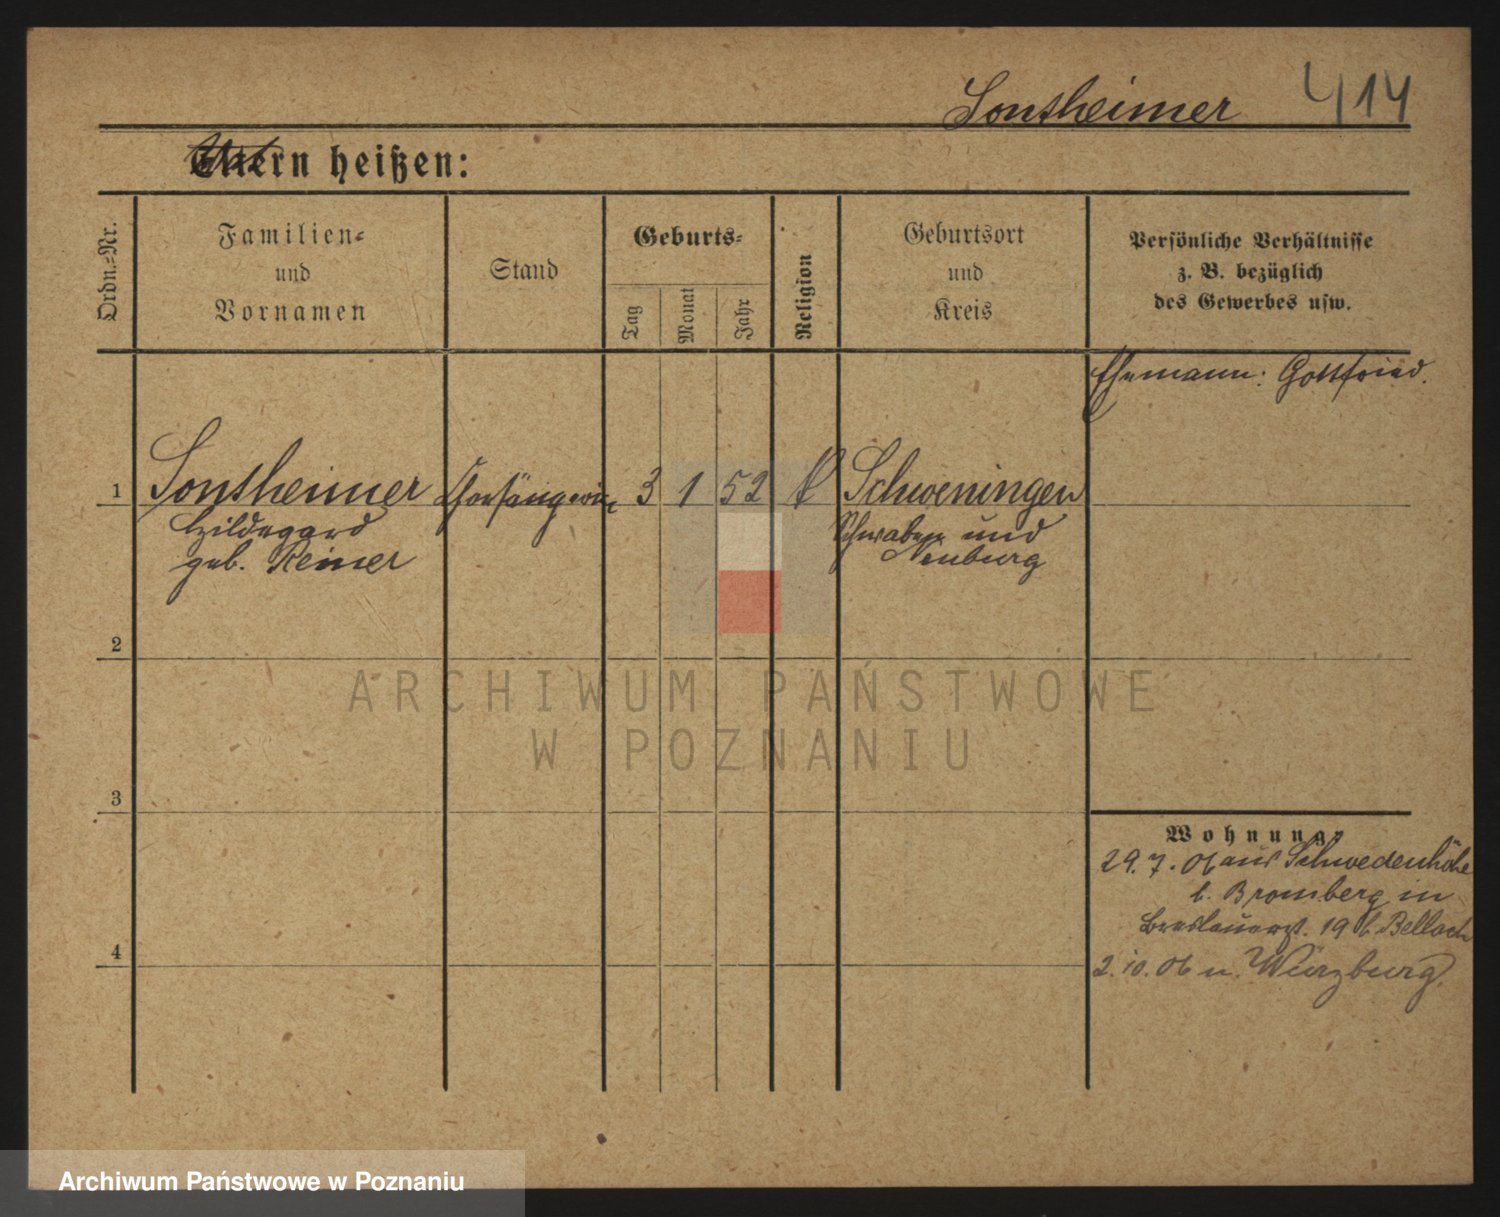 Sontheimer 414
Eltern heißen:
Ordn.-Nr.
Familien-
und
Vornamen
Stand
Geburts-
Tag
Monat
Jahr
Religion
Geburtsort
und
Kreis
Persönliche Verhältnisse
z. B. bezüglich
des Gewerbes usw.
Ehemann: Gottfried.
1 Sontheimer Chorsängerin 3 1 52 Schweningen
Hildegard Schwaben und
geb. Reiner Neuburg
2
3
4
Wohnung
29.7.06 aus Schwedenhöhe
b. Bromberg in
Breslauerst. 19 b. Bellach
2.10.06 n. Würzburg.
ARCHIWUM PAŃSTWOWE
W POZNANIU
Archiwum Państwowe w Poznaniu